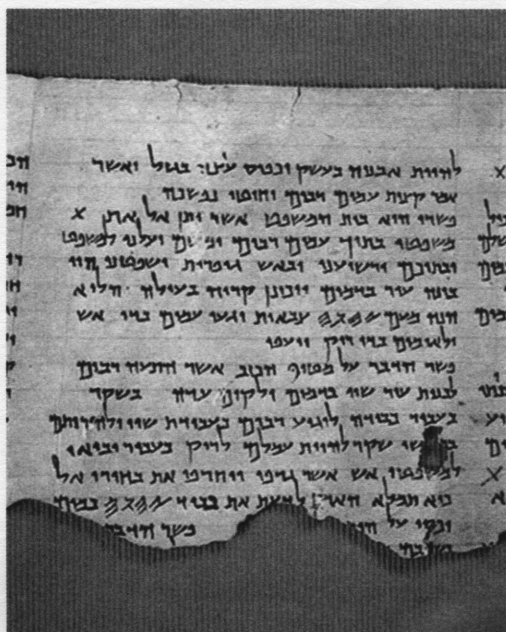 להיות אבניה בעשק וכפיס עיצה בגזל ואשר
אמר קצות עמים רבים וחוטי נפשכה
פשרו הוא בית המשפט אשר יתן אל את X
משפטו בתוך עמים רבים ומשם יעלנו למשפט
ובתוכם ירשיענו ובאש גופרית ישפטנו הוי
בונה עיר בדמים ויכונן קריה בעולה הלוא
הנה מעם 𐤉𐤄𐤅𐤄 צבאות יגעו עמים בדי אש
ולאומים בדי ריק ייעפו
פשר הדבר על מטיף הכזב אשר התעה רבים
לבנות עיר שוו בדמים ולקים עדה בשקר
בעבור כבודה לוגיע רבים בעבודת שוו ולהרותם
שקר להיות עמלם לריק בעבור יבואו
למשפטי אש אשר גדפו ויחרפו את בחירי אל
כיא תמלא הארץ לדעת את כבוד 𐤉𐤄𐤅𐤄 כמים
יכסו על פשר